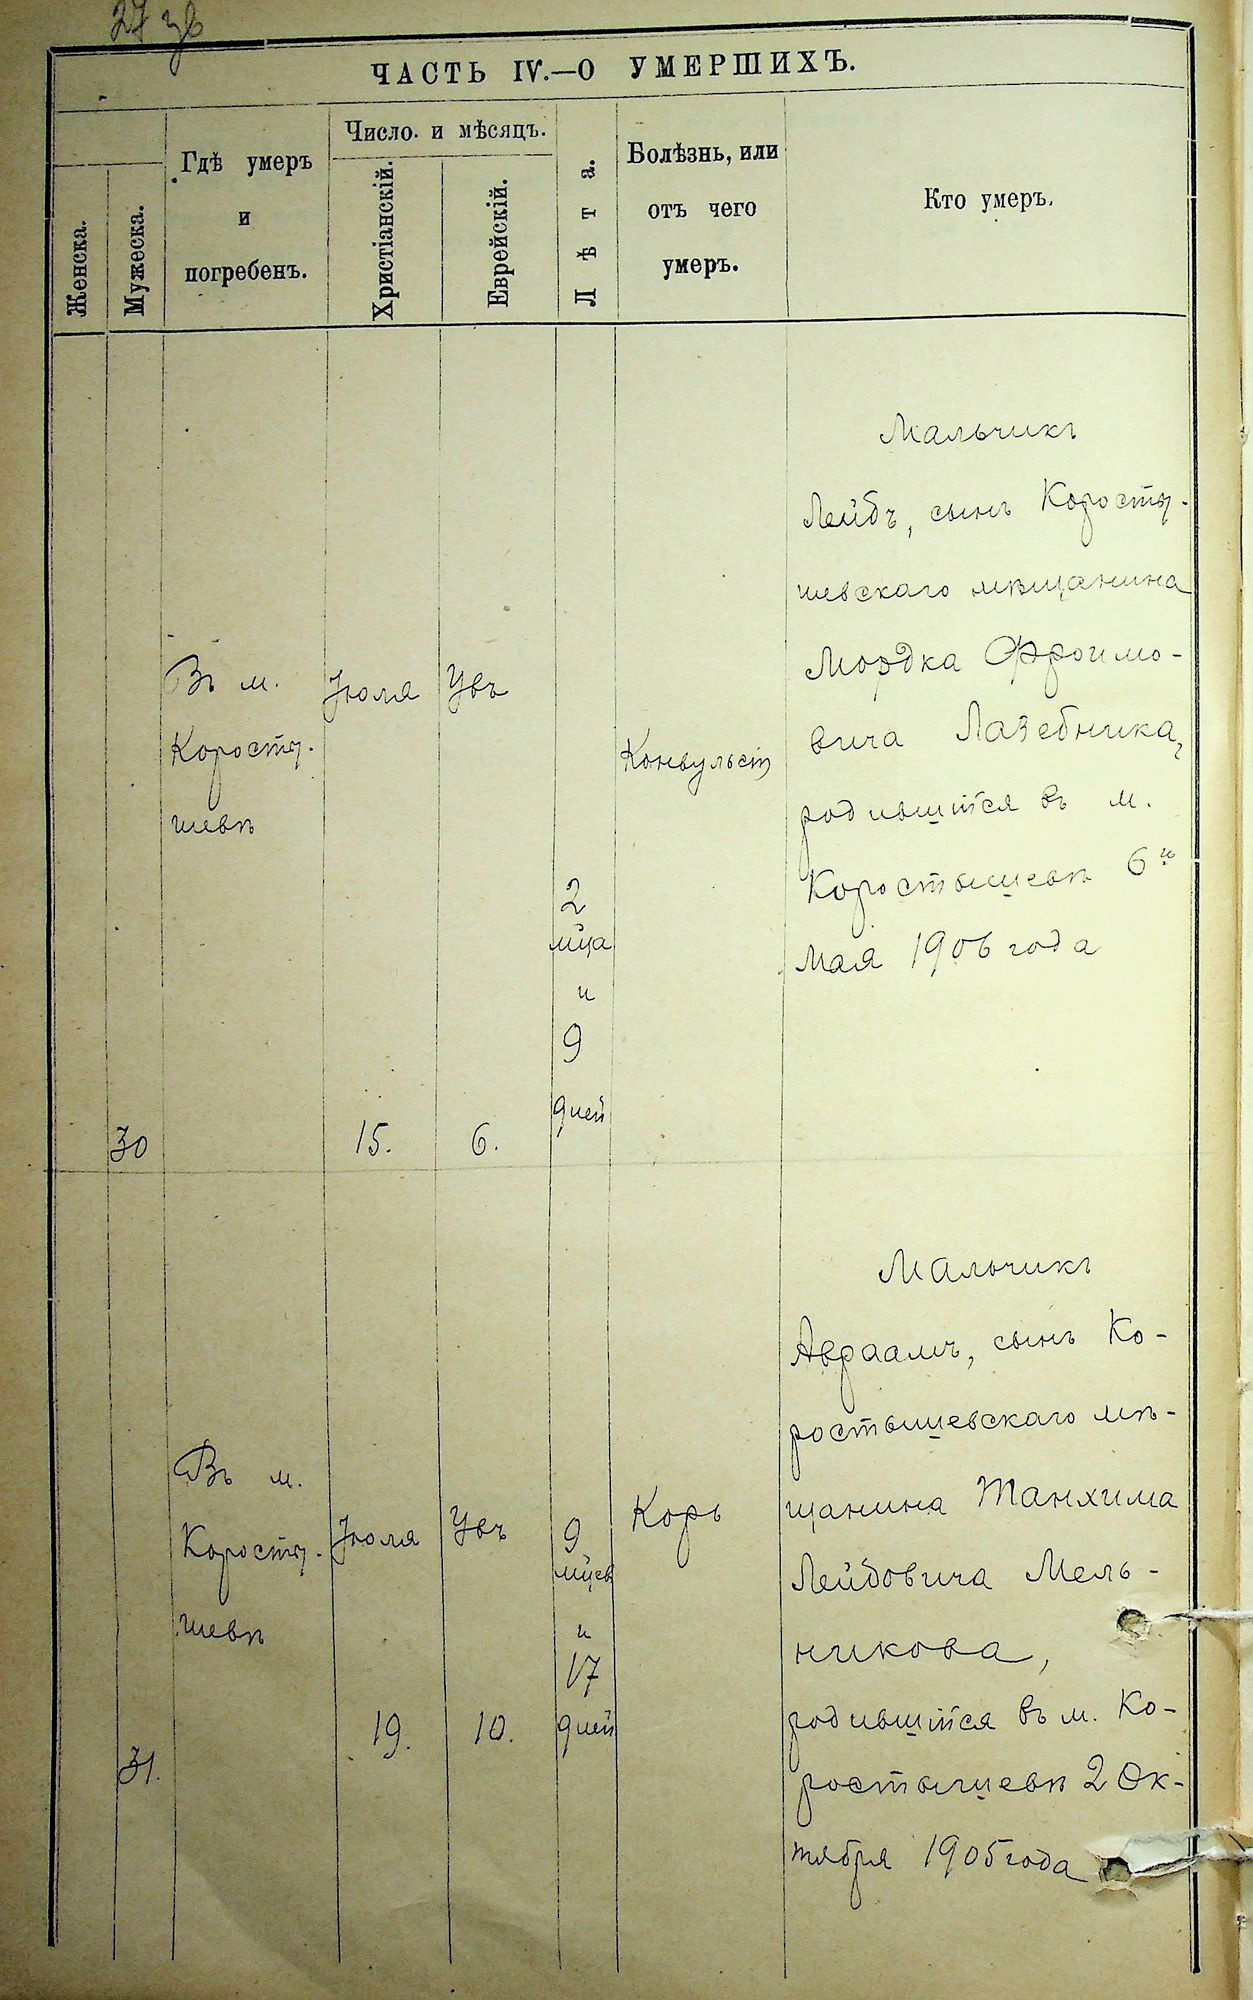 27
ЧАСТЬ IV.—О УМЕРШИХЪ.
Женска.
Мужеска.
Гдѣ умеръ
и
погребенъ.
Число. и мѣсяцъ.
Христіанскій.
Еврейскій.
Лѣта.
Болѣзнь, или
отъ чего
умеръ.
Кто умеръ.
30
Въ м.
Коросты-
шевѣ
Іюля
15.
Увъ
6.
2
мца
и
9
дней
Конвульсія
Мальчикъ
Лейбъ, сынъ Коросты-
шевскаго мѣщанина
Мордка Фроимо-
вича Лазебника,
родившійся въ м.
Коростышевѣ 6и
мая 1906 года
31.
Въ м.
Коросты-
шевѣ
Іюля
19.
Увъ
10.
9
мцев
и
17
дней
Корь
Мальчикъ
Авраамъ, сынъ Ко-
ростышевскаго мѣ-
щанина Танхима
Лейбовича Мель-
никова,
родившійся въ м. Ко-
ростышевѣ 2 Ок-
тября 1905 года